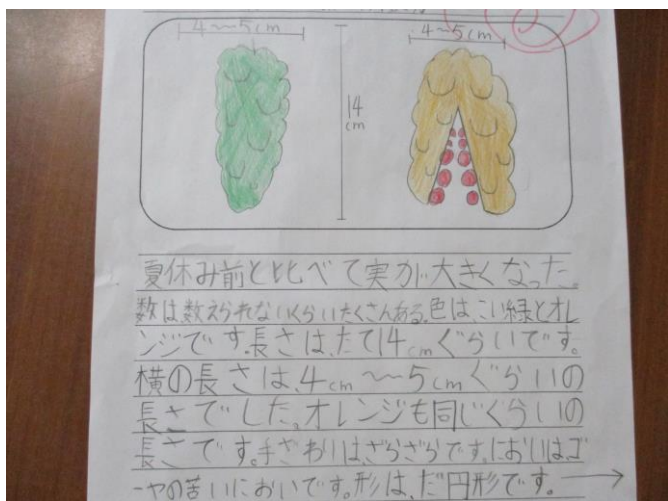 4～5cm
4～5cm
14
cm
夏休み前と比べて実が大きくなった。
数は数えられないくらいたくさんある。色は、こい緑とオレ
ンジです。長さは、たて14cmぐらいです。
横の長さは、4cm～5cmぐらいの
長さでした。オレンジも同じくらいの
長さです。手ざわりは、ざらざらです。においは、ゴ
ーヤの苦いにおいです。形は、だ円形です。→